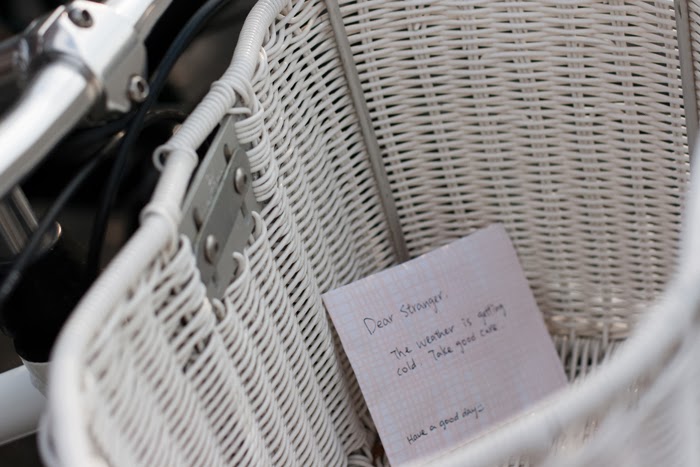 Dear Stranger,
The weather is getting
cold. Take good care.
Have a good day:)